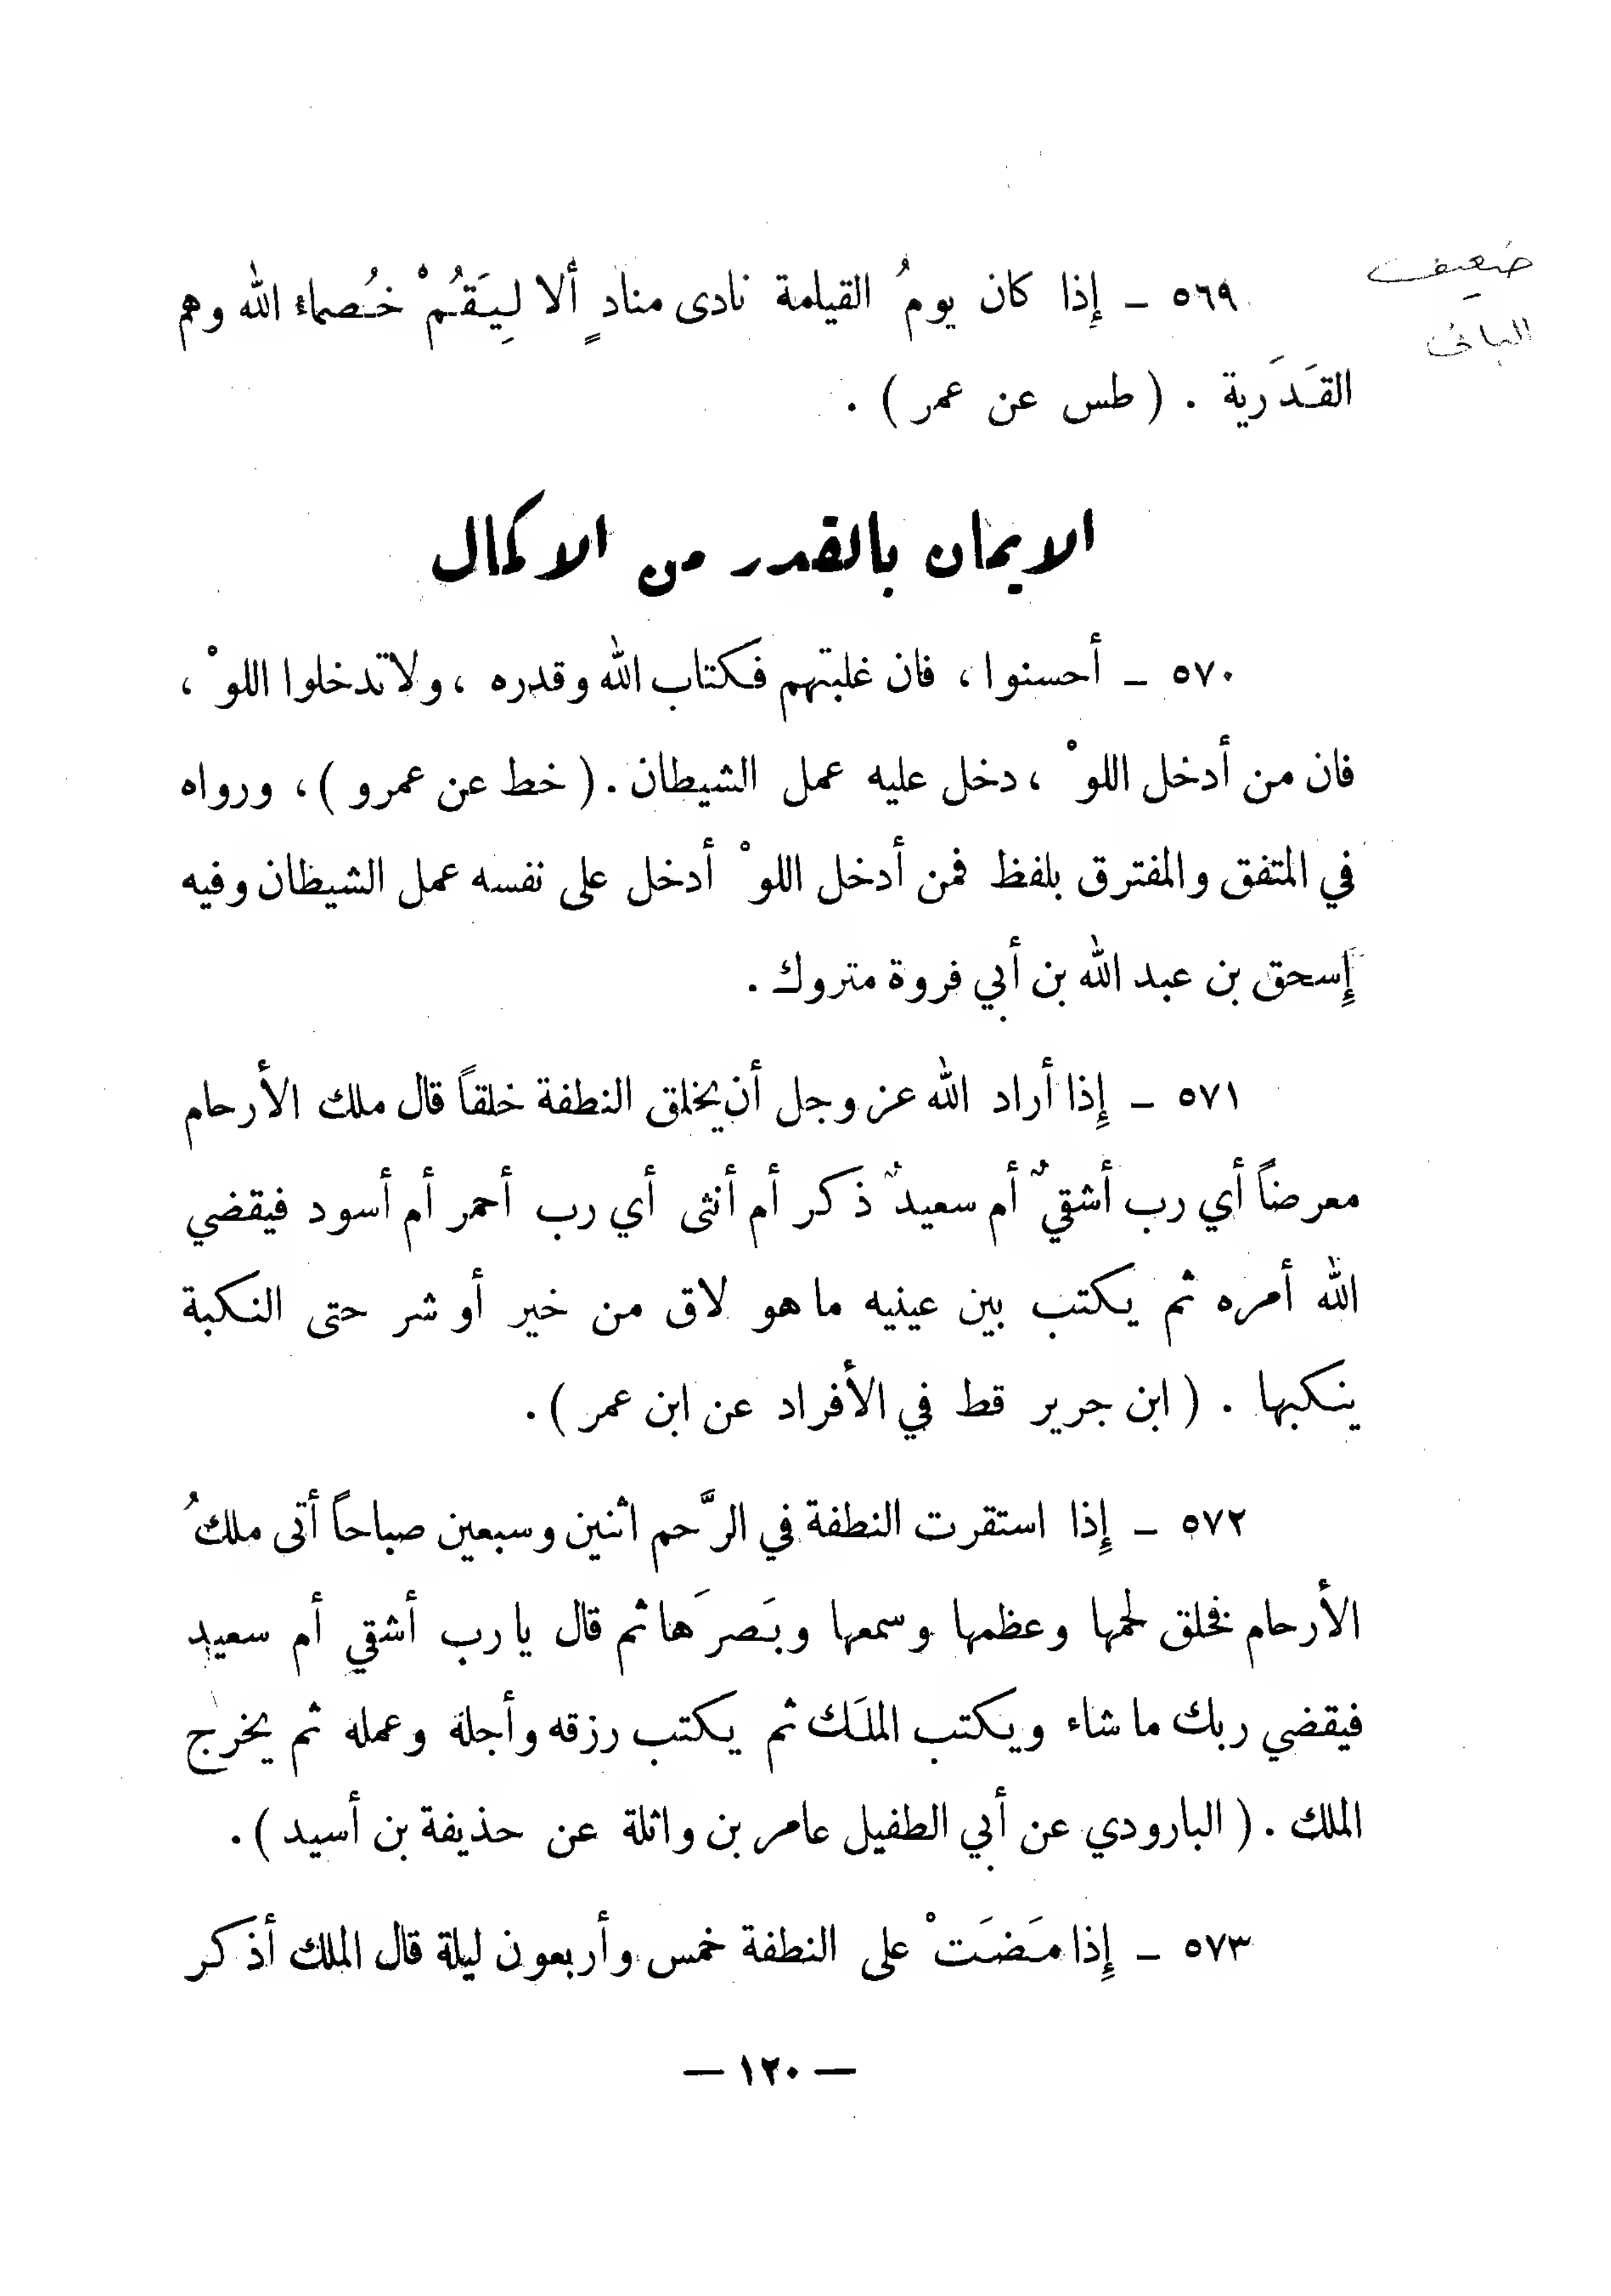 ضعيف
البانى
٥٦٩ ـ إِذا كان يومُ القيامة نادى منادٍ ألا لِيَقُمْ خُصماء الله وهم
القَدَرية . ( طس عن عمر ) .
الايمان بالقدر من الاكمال
٥٧٠ ـ أحسنوا ، فان غلبتهم فكتاب الله وقدره ، ولا تدخلوا اللوْ ،
فان من أدخل اللوْ ، دخل عليه عمل الشيطان . ( خط عن عمرو ) ، ورواه
في المتفق والمفترق بلفظ فمن أدخل اللوْ أدخل على نفسه عمل الشيطان وفيه
إِسحق بن عبد الله بن أبي فروة متروك .
٥٧١ ـ إِذا أراد الله عز وجل أن يخلق النطفة خلقاً قال ملك الأرحام
معرضاً أي رب أشقيٌ أم سعيدٌ ذكر أم أنثى أي رب أحمر أم أسود فيقضي
الله أمره ثم يكتب بين عينيه ما هو لاق من خير أو شر حتى النكبة
ينكبها . ( ابن جرير قط في الأفراد عن ابن عمر ) .
٥٧٢ ـ إِذا استقرت النطفة في الرَّحم اثنين وسبعين صباحاً أتى ملكُ
الأرحام فخلق لحمها وعظمها وسمعها وبَصرَها ثم قال يا رب أشقي أم سعيد
فيقضي ربك ما شاء ويكتب الملَك ثم يكتب رزقه وأجلة وعمله ثم يخرج
الملك . ( البارودي عن أبي الطفيل عامر بن واثلة عن حذيفة بن أسيد ) .
٥٧٣ ـ إِذا مَضَتْ على النطفة خمس وأربعون ليلة قال الملك أذكر
— ١٢٠ —